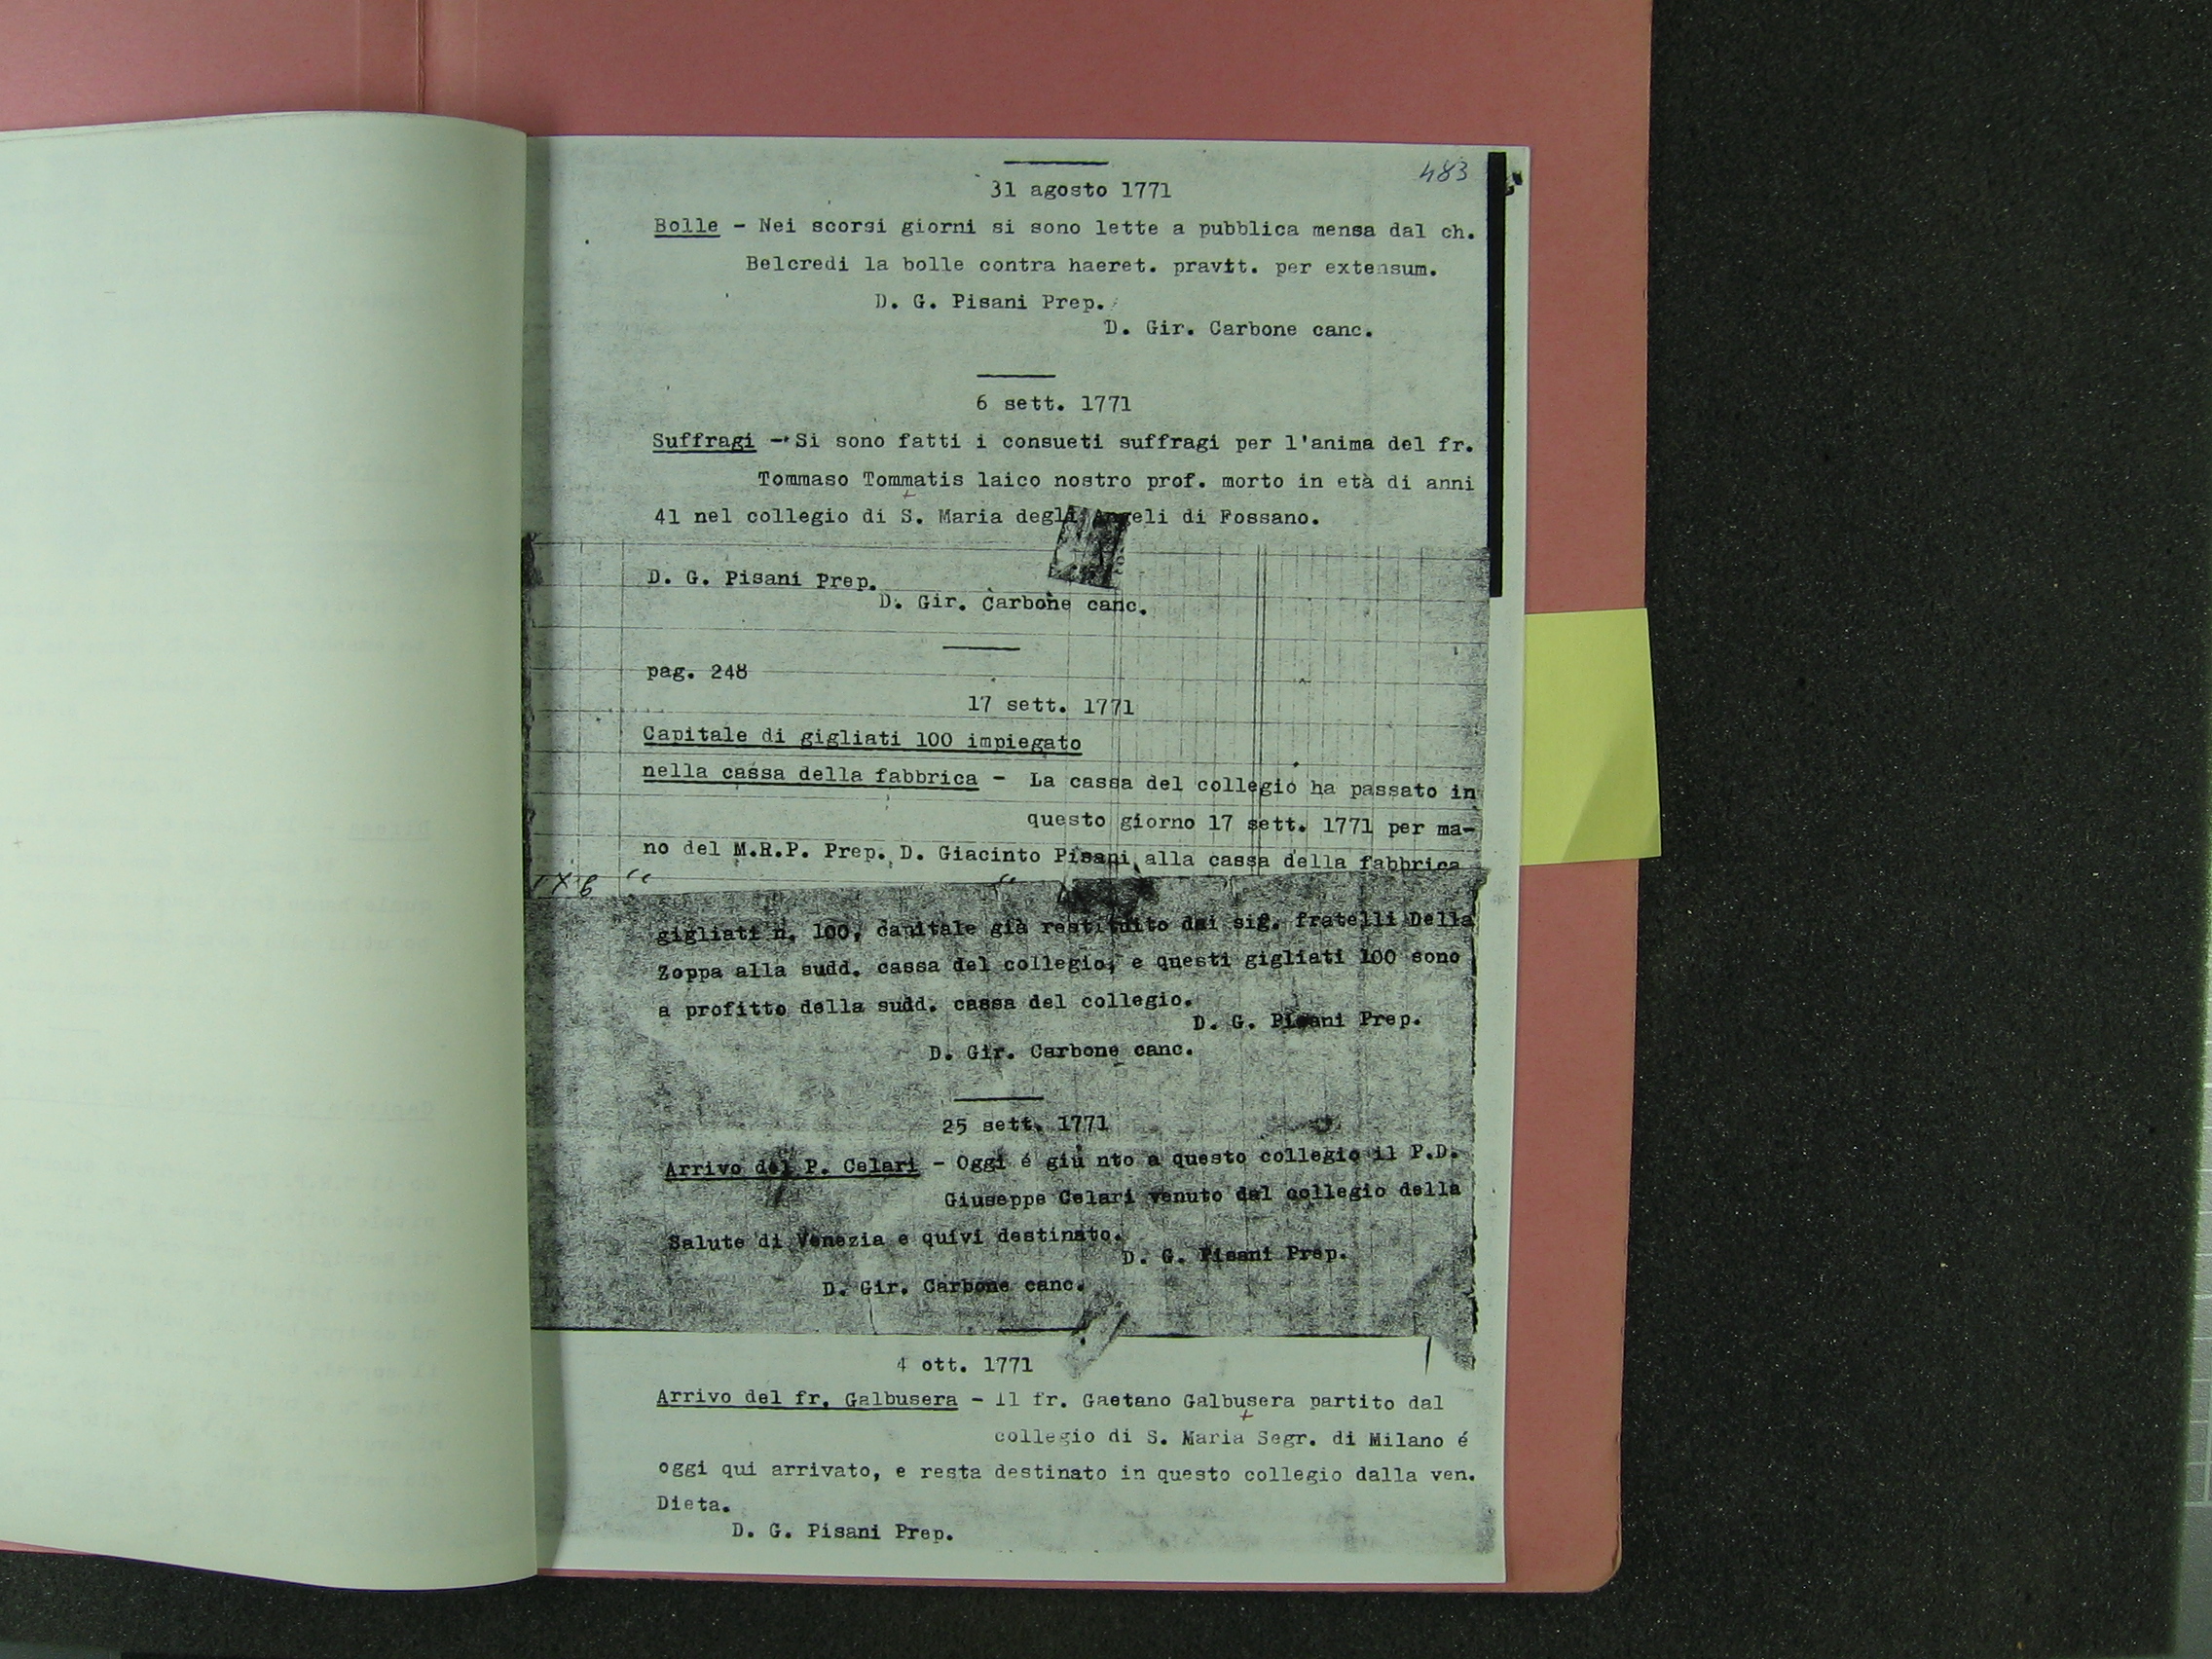 483
31 agosto 1771
Bolle - Nei scorsi giorni si sono lette a pubblica mensa dal ch.
Belcredi la bolle contra haeret. pravit. per extensum.
D. G. Pisani Prep.
D. Gir. Carbone canc.
6 sett. 1771
Suffragi - Si sono fatti i consueti suffragi per l'anima del fr.
Tommaso Tommatis laico nostro prof. morto in età di anni
41 nel collegio di S. Maria degli Angeli di Fossano.
D. G. Pisani Prep.
D. Gir. Carbone canc.
pag. 248
17 sett. 1771
Capitale di gigliati 100 impiegato
nella cassa della fabbrica - La cassa del collegio ha passato in
questo giorno 17 sett. 1771 per ma-
no del M.R.P. Prep. D. Giacinto Pisani alla cassa della fabbrica
gigliati n. 100, capitale già restituito dai sig. fratelli Della
Zoppa alla sudd. cassa del collegio, e questi gigliati 100 sono
a profitto della sudd. cassa del collegio.
D. G. Pisani Prep.
D. Gir. Carbone canc.
25 sett. 1771
Arrivo del P. Celari - Oggi é giu nto a questo collegio il P.D.
Giuseppe Celari venuto dal collegio della
Salute di Venezia e quivi destinato.
D. G. Pisani Prep.
D. Gir. Carbone canc.
4 ott. 1771
Arrivo del fr. Galbusera - il fr. Gaetano Galbusera partito dal
collegio di S. Maria Segr. di Milano é
oggi qui arrivato, e resta destinato in questo collegio dalla ven.
Dieta.
D. G. Pisani Prep.